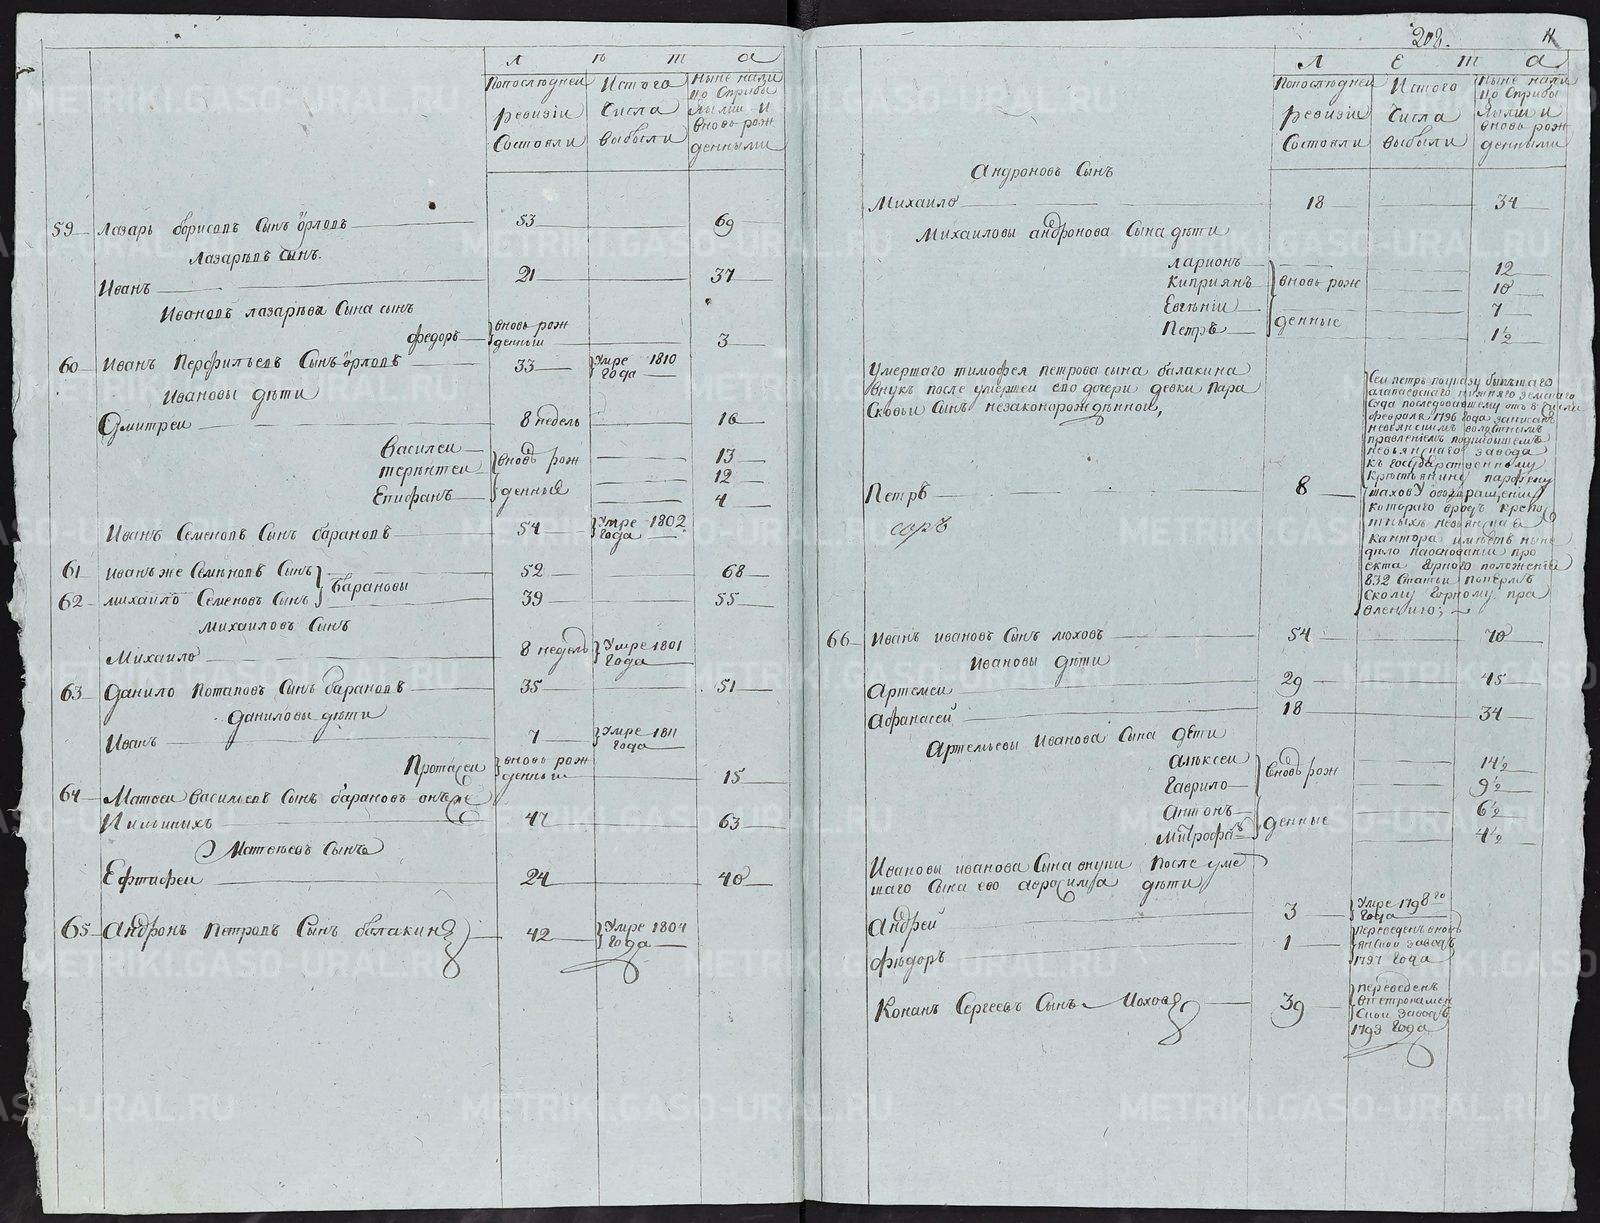 Л ѣ т а
Попослѣдней Истого Ныне нали
цо Сприбы
ревизіи Числа лыми И
вновь рож
Состояли выбыли денными
59 Лазарь борисовъ Сынъ орловъ 53 69
Лазарѣвъ Сынъ.
Иванъ 21 37
Ивановъ лазарѣва Сына сынъ
федоръ вновь рож
денныи 3
60 Иванъ Перфильевъ Сынъ орловъ 33 Умре 1810
года
Ивановы дѣти
Дмитреи 8 недель 16
Василеи вновь рож 13
терѣнтеи 12
Епифанъ денные 4
Иванъ Семеновъ Сынъ барановъ 54 Умре 1802
года
61 Иванъ же Семѣновъ Сынъ 52 68
Барановы
62 михайло Семеновъ Сынъ 39 55
Михаиловъ Сынъ
Михаило 8 недель Умре 1801
года
63 Данило Потаповъ Сынъ барановъ 35 51
Даниловы дѣти
Иванъ 7 Умре 1811
года
Протасеи вновь рож
денныи 15
64 Матвеи Васильевъ Сынъ барановъ онъ же
Ильиныхъ 47 63
Матвѣевъ Сынъ
Ефтафеи 24 40
65 Андронъ Петровъ Сынъ балакинъ 42 Умре 1804
года
208. 11
Л е т а
Попоследней Истого Ныне нали
цо Сприбы
ревизіи Числа лыми И
вновь рож
Состояли выбыли денными
Андроновъ Сынъ
Михаило 18 34
Михаиловы андронова Сына дѣти
Ларионъ 12
Киприянъ вновь рож 10
Евгѣніи 7
Петръ денные 1½
Умершаго тимофея петрова сына балакина
внукъ после умершеи его дочери девки Пара
Сковьи Сынъ незаконорождѣнной,
Петръ 8
Сеи петръ поуказу бывшаго
алапаевскаго нижняго земскаго
Суда последовавшему отъ 8 Числа
февраля 1796 года записанъ
невьянскимъ волостнымъ
правлениемъ подшибшемъ
невьянскаго завода
къ государственному
Крѣстьянину парфену
о возвращении
котораго вродъ крепо
стныхъ невьянская
кантора имѣетъ ныне
дѣло наосновании про
екта горного положения
832 Статьи поперм
скому горному пра
влению;
66 Иванъ ивановъ Сынъ моховъ 54 70
Ивановы дѣти
Артемеи 29 45
Афанасей 18 34
Артемьевы Иванова Сына дѣти
Алѣксеи 14½
Гаврило вновь рож 9½
Антонъ 6½
Митрофанъ денные 4½
Ивановы иванова Сына внуки После уме
шаго Сына его авросимѣа дѣти
Андрей 3 Умре 1798го
года
фѣдоръ 1 Переведенъ вновь
янской заводъ
1797 года
Конанъ Сергеевъ Сынъ Моховъ 39 переведенъ
впетрокамен
Скои заводъ
1793 года